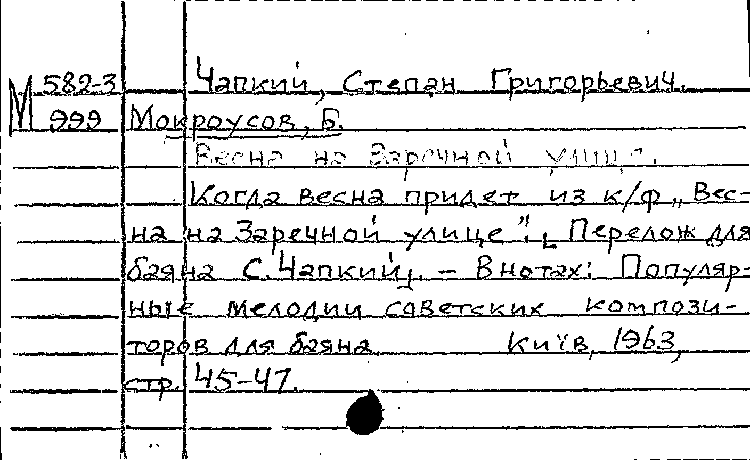 М 582-3 Чапкий, Степан Григорьевич.
999 Мокроусов, Б.
Весна на Заречной улице.
Когда весна придет из к/ф „Вес-
на на Заречной улице". [Перелож для
баяна С. Чапкий]. - В нотах: Популяр-
ные мелодии советских компози-
торов для баяна. Київ, 1963,
стр. 45-47.